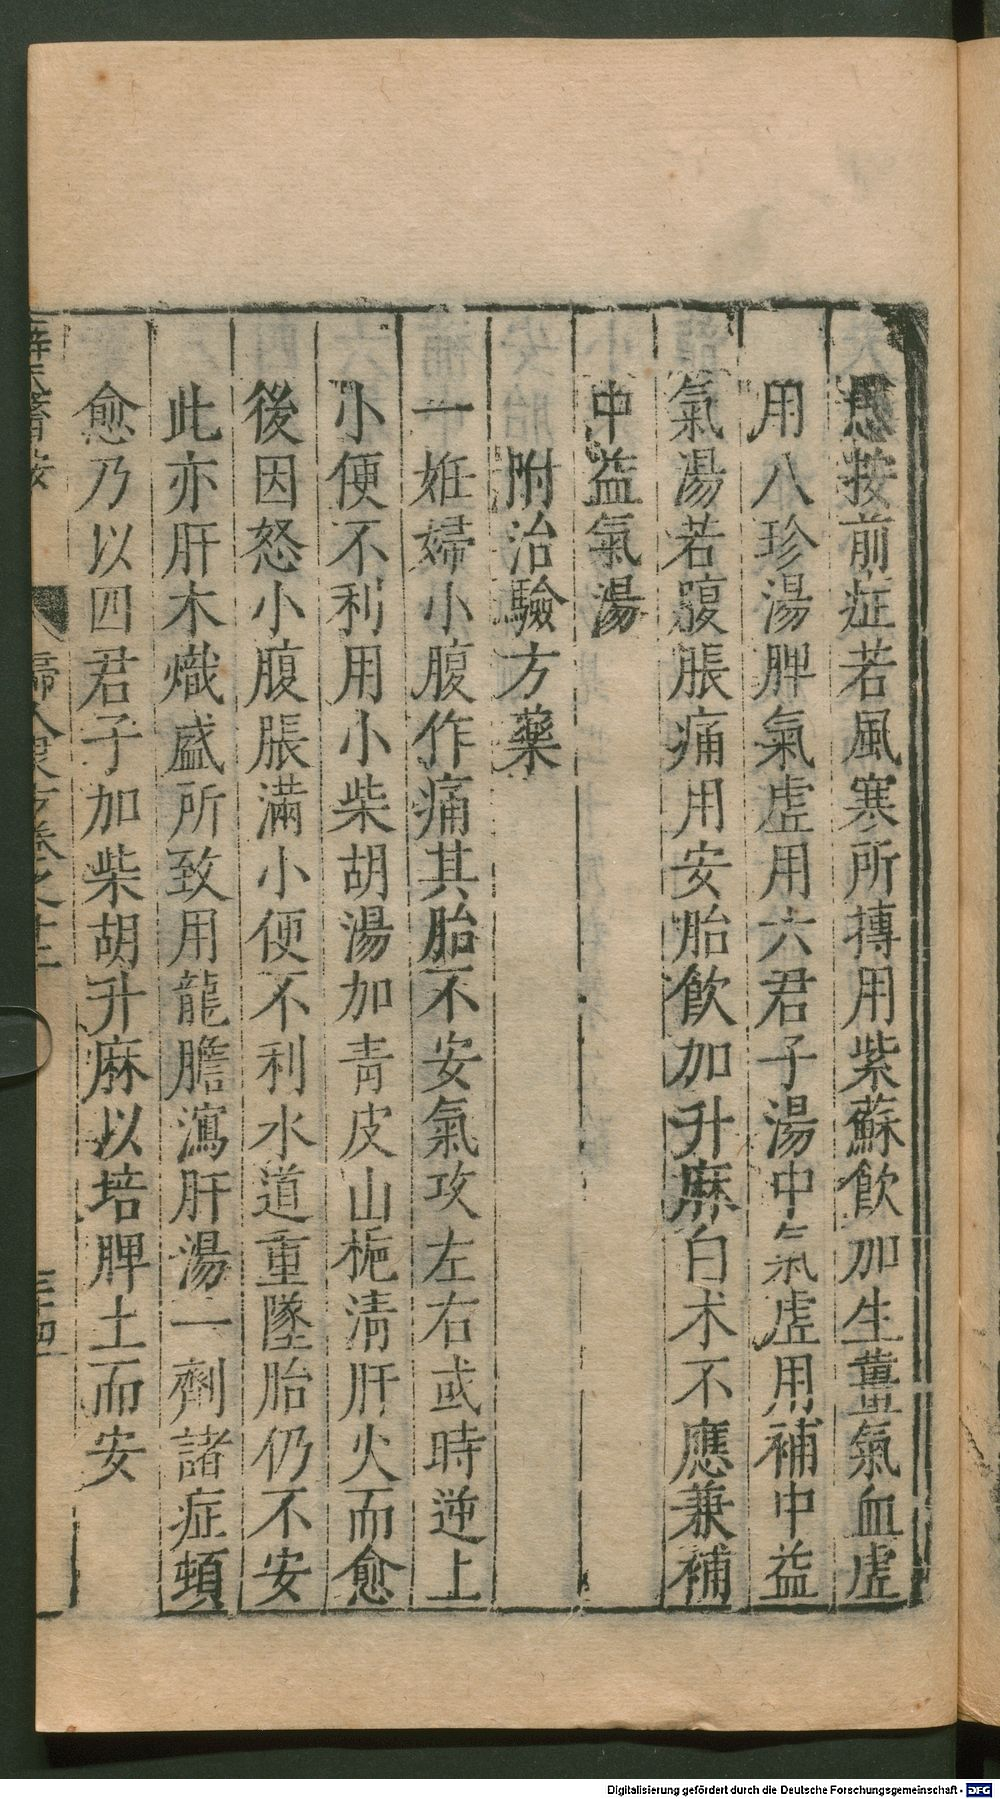 愚按前症若風寒所摶用紫蘇飲加生薑氣血虛
用八珍湯脾氣虛用六君子湯中氣虛用補中益
氣湯若腹脹痛用安胎飲加升麻白术不應兼補
中益氣湯
附治驗方藥
一姙婦小腹作痛其胎不安氣攻左右或時逆上
小便不利用小柴胡湯加青皮山梔淸肝火而愈
後因怒小腹脹滿小便不利水道重墜胎仍不安
此亦肝木熾盛所致用龍膽瀉肝湯一劑諸症頓
愈乃以四君子加柴胡升麻以培脾土而安
婦人良方卷之十二
三十四
Digitalisierung gefördert durch die Deutsche Forschungsgemeinschaft - DFG